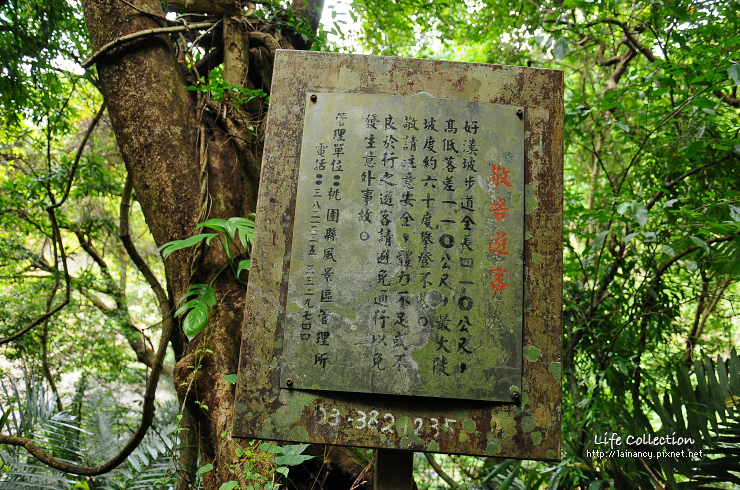 敬告遊客
好漢坡步道全長四一0公尺，
高低落差一一0公尺，最大陡
坡度約六十度攀登不易。
敬請注意安全，體力不足或不
良於行之遊客請避免通行以免
發生意外事故。
管理單位：桃園縣風景區管理所
電話：三八二一二三五 三三二九七四四
03-3821235
Life Collection
http://lainancy.pixnet.net